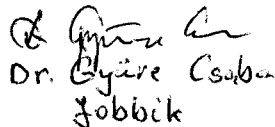 Dr. Gyüre Csaba
Jobbik